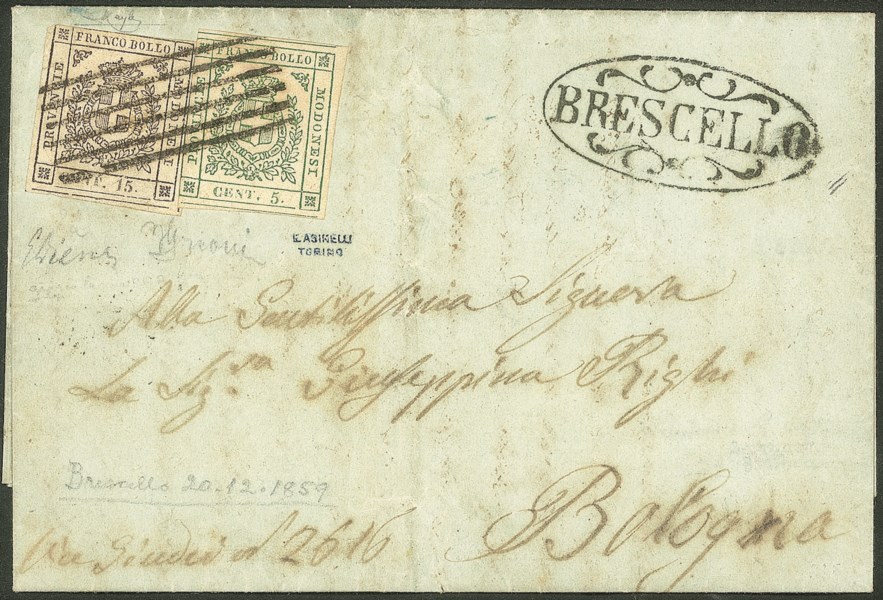 Raya
FRANCO BOLLO
PROVINCIE
MODONESI
CENT. 15.
FRANCO BOLLO
PROVINCIE
MODONESI
CENT. 5.
BRESCELLO
EDiena
E. ASINELLI
TORINO
Alla Gentilissima Signora
La Sig.ra Giuseppina Righi
Brescello 20.12.1859
Bologna
Via Giudei n° 2616